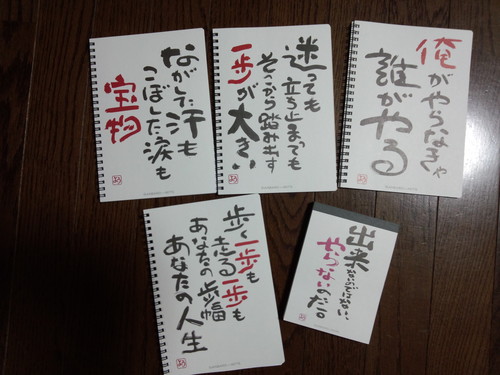 ながした汗も
こぼした涙も
宝物
迷っても
立ち止まっても
そこから踏み出す
一歩が大きい
俺がやらなきゃ
誰がやる
歩く一歩も
走る一歩も
あなたの歩幅
あなたの人生
出来ないのではない、
やらないのだ。